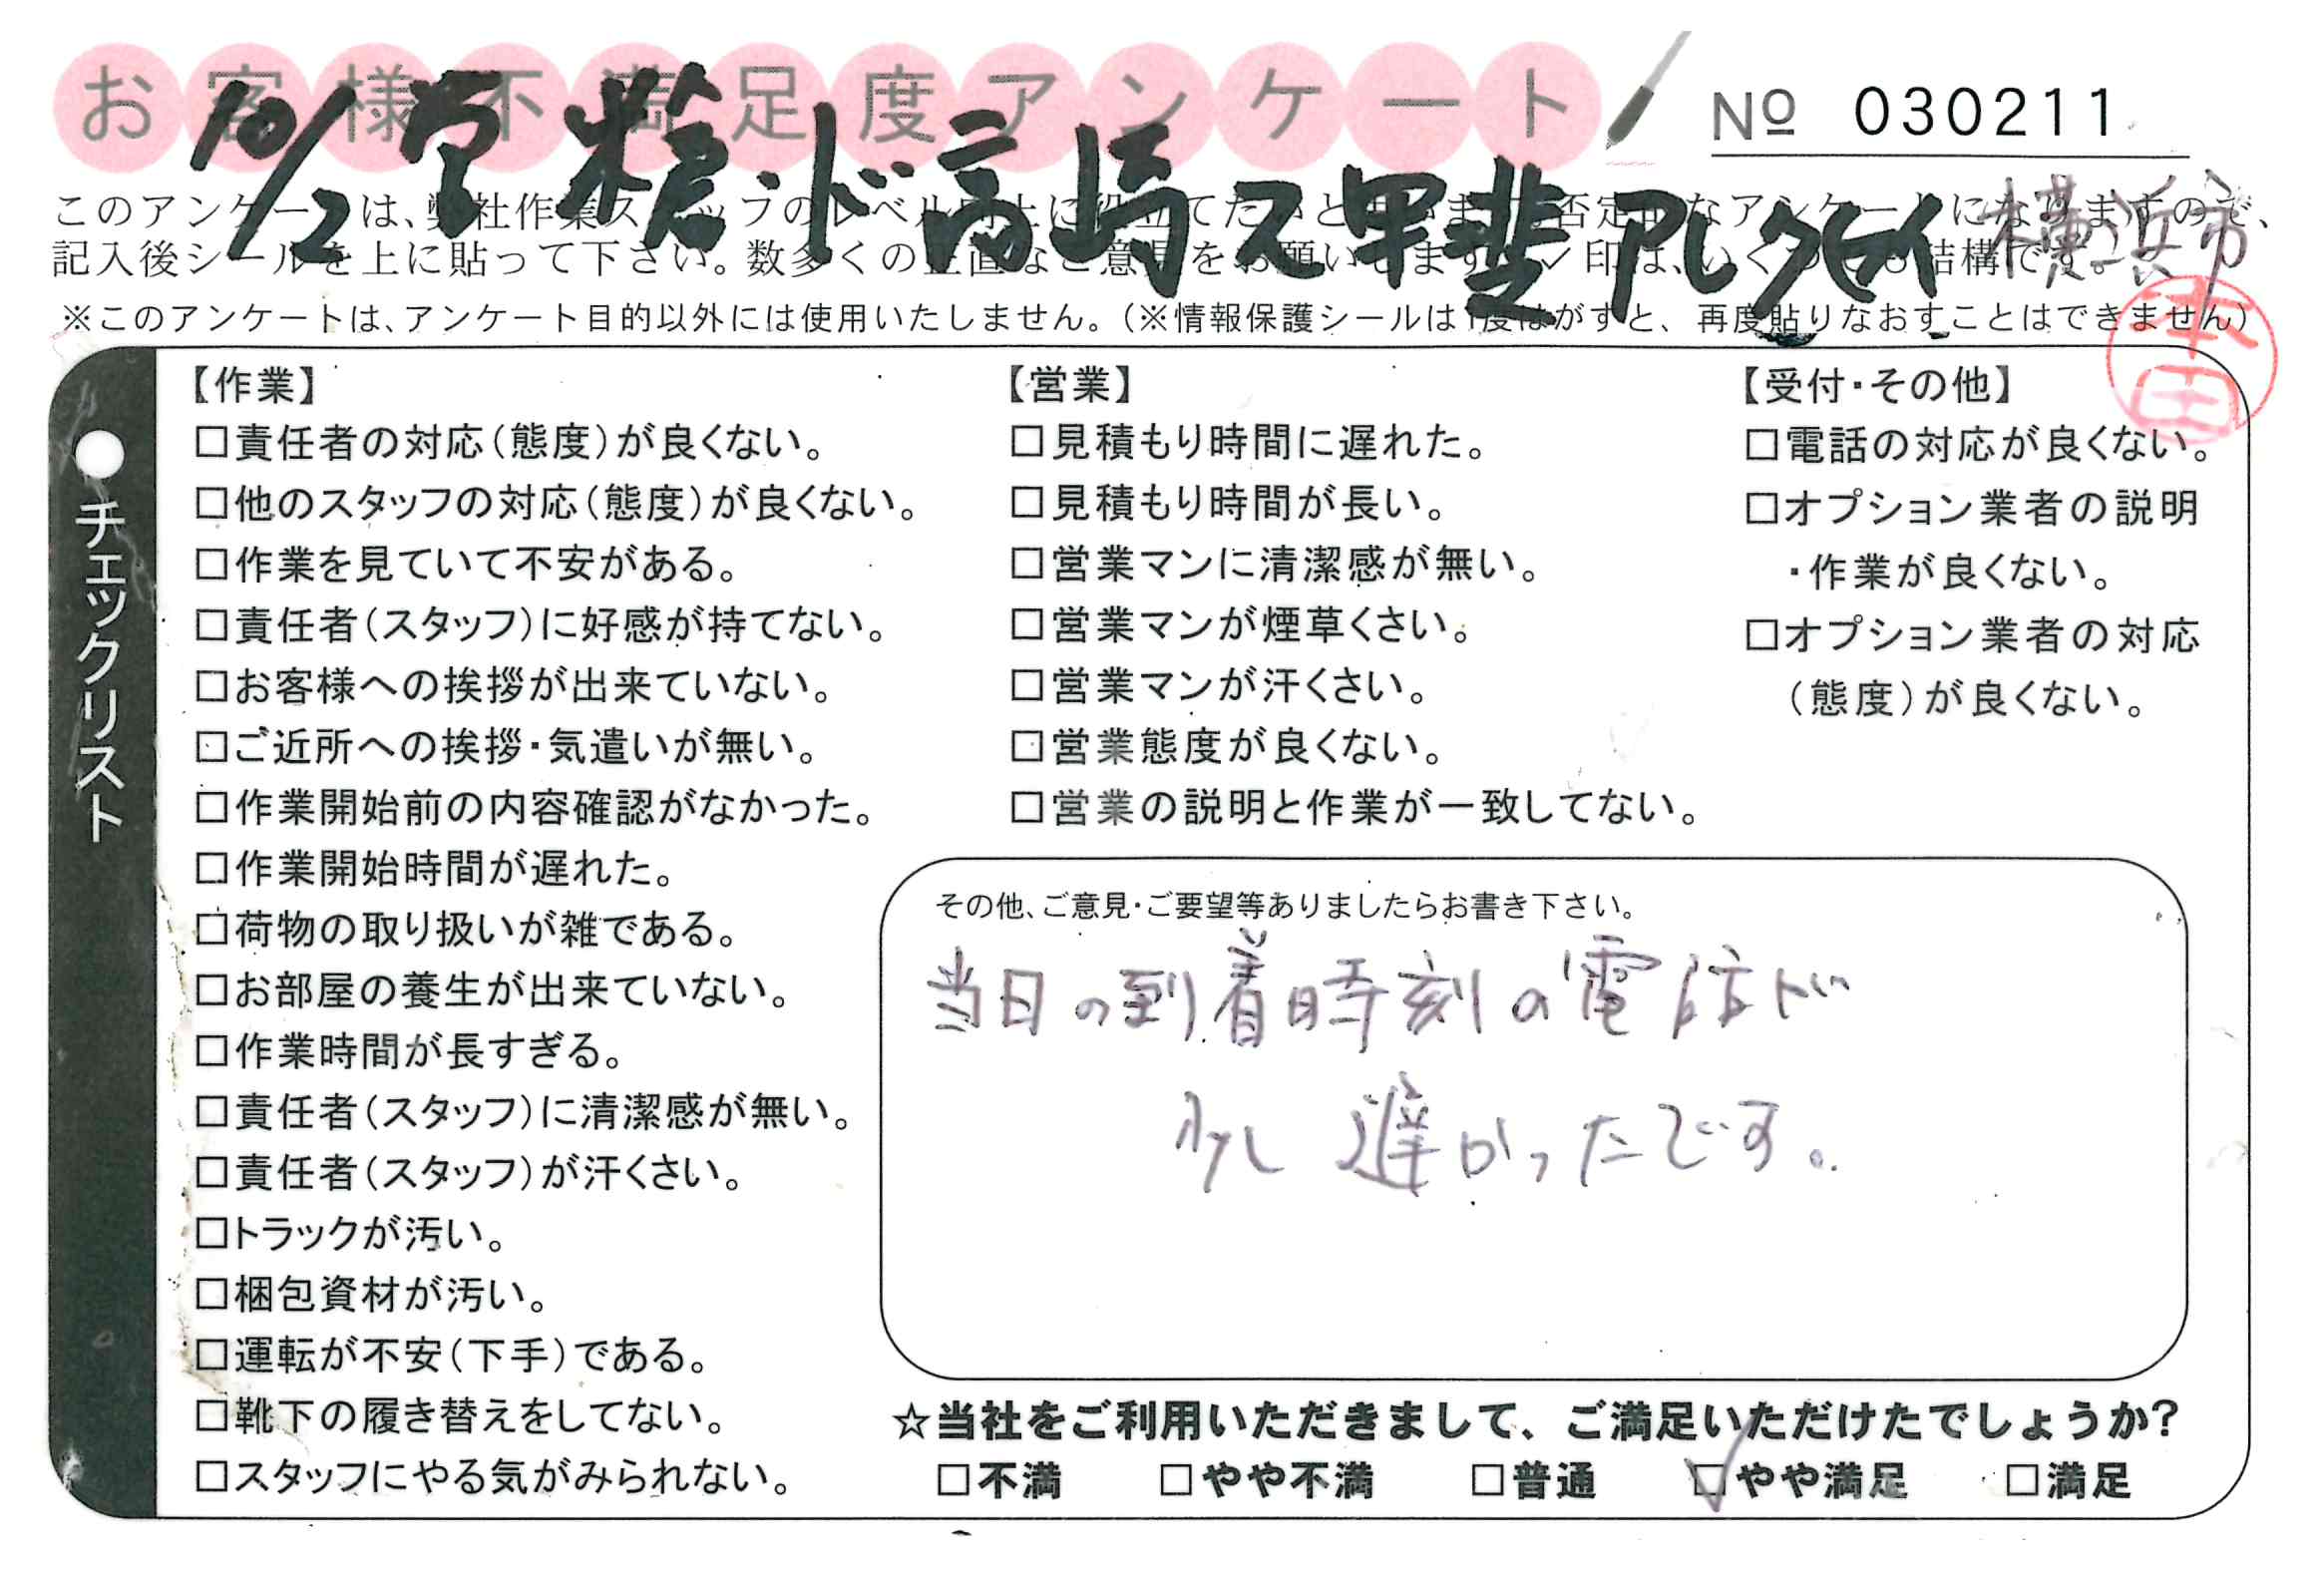 お客様不満足度アンケート
№ 030211
10/2
高崎 ス 甲斐 ア
横浜市
本田
このアンケートは、弊社作業スタッフのレベル向上に役立てたいと思います。否定的なアンケートになりますので、
記入後シールを上に貼って下さい。数多くの正直なご意見をお願いします。✓印は、いくつでも結構です。
※このアンケートは、アンケート目的以外には使用いたしません。（※情報保護シールは1度はがすと、再度貼りなおすことはできません）
●チェックリスト
【作業】
□責任者の対応（態度）が良くない。
□他のスタッフの対応（態度）が良くない。
□作業を見ていて不安がある。
□責任者（スタッフ）に好感が持てない。
□お客様への挨拶が出来ていない。
□ご近所への挨拶・気遣いが無い。
□作業開始前の内容確認がなかった。
□作業開始時間が遅れた。
□荷物の取り扱いが雑である。
□お部屋の養生が出来ていない。
□作業時間が長すぎる。
□責任者（スタッフ）に清潔感が無い。
□責任者（スタッフ）が汗くさい。
□トラックが汚い。
□梱包資材が汚い。
□運転が不安（下手）である。
□靴下の履き替えをしてない。
□スタッフにやる気がみられない。
【営業】
□見積もり時間に遅れた。
□見積もり時間が長い。
□営業マンに清潔感が無い。
□営業マンが煙草くさい。
□営業マンが汗くさい。
□営業態度が良くない。
□営業の説明と作業が一致してない。
【受付・その他】
□電話の対応が良くない。
□オプション業者の説明
・作業が良くない。
□オプション業者の対応
（態度）が良くない。
その他、ご意見・ご要望等ありましたらお書き下さい。
当日の到着時刻の電話が
少し遅かったです。
☆当社をご利用いただきまして、ご満足いただけたでしょうか?
□不満 □やや不満 □普通 ☑やや満足 □満足